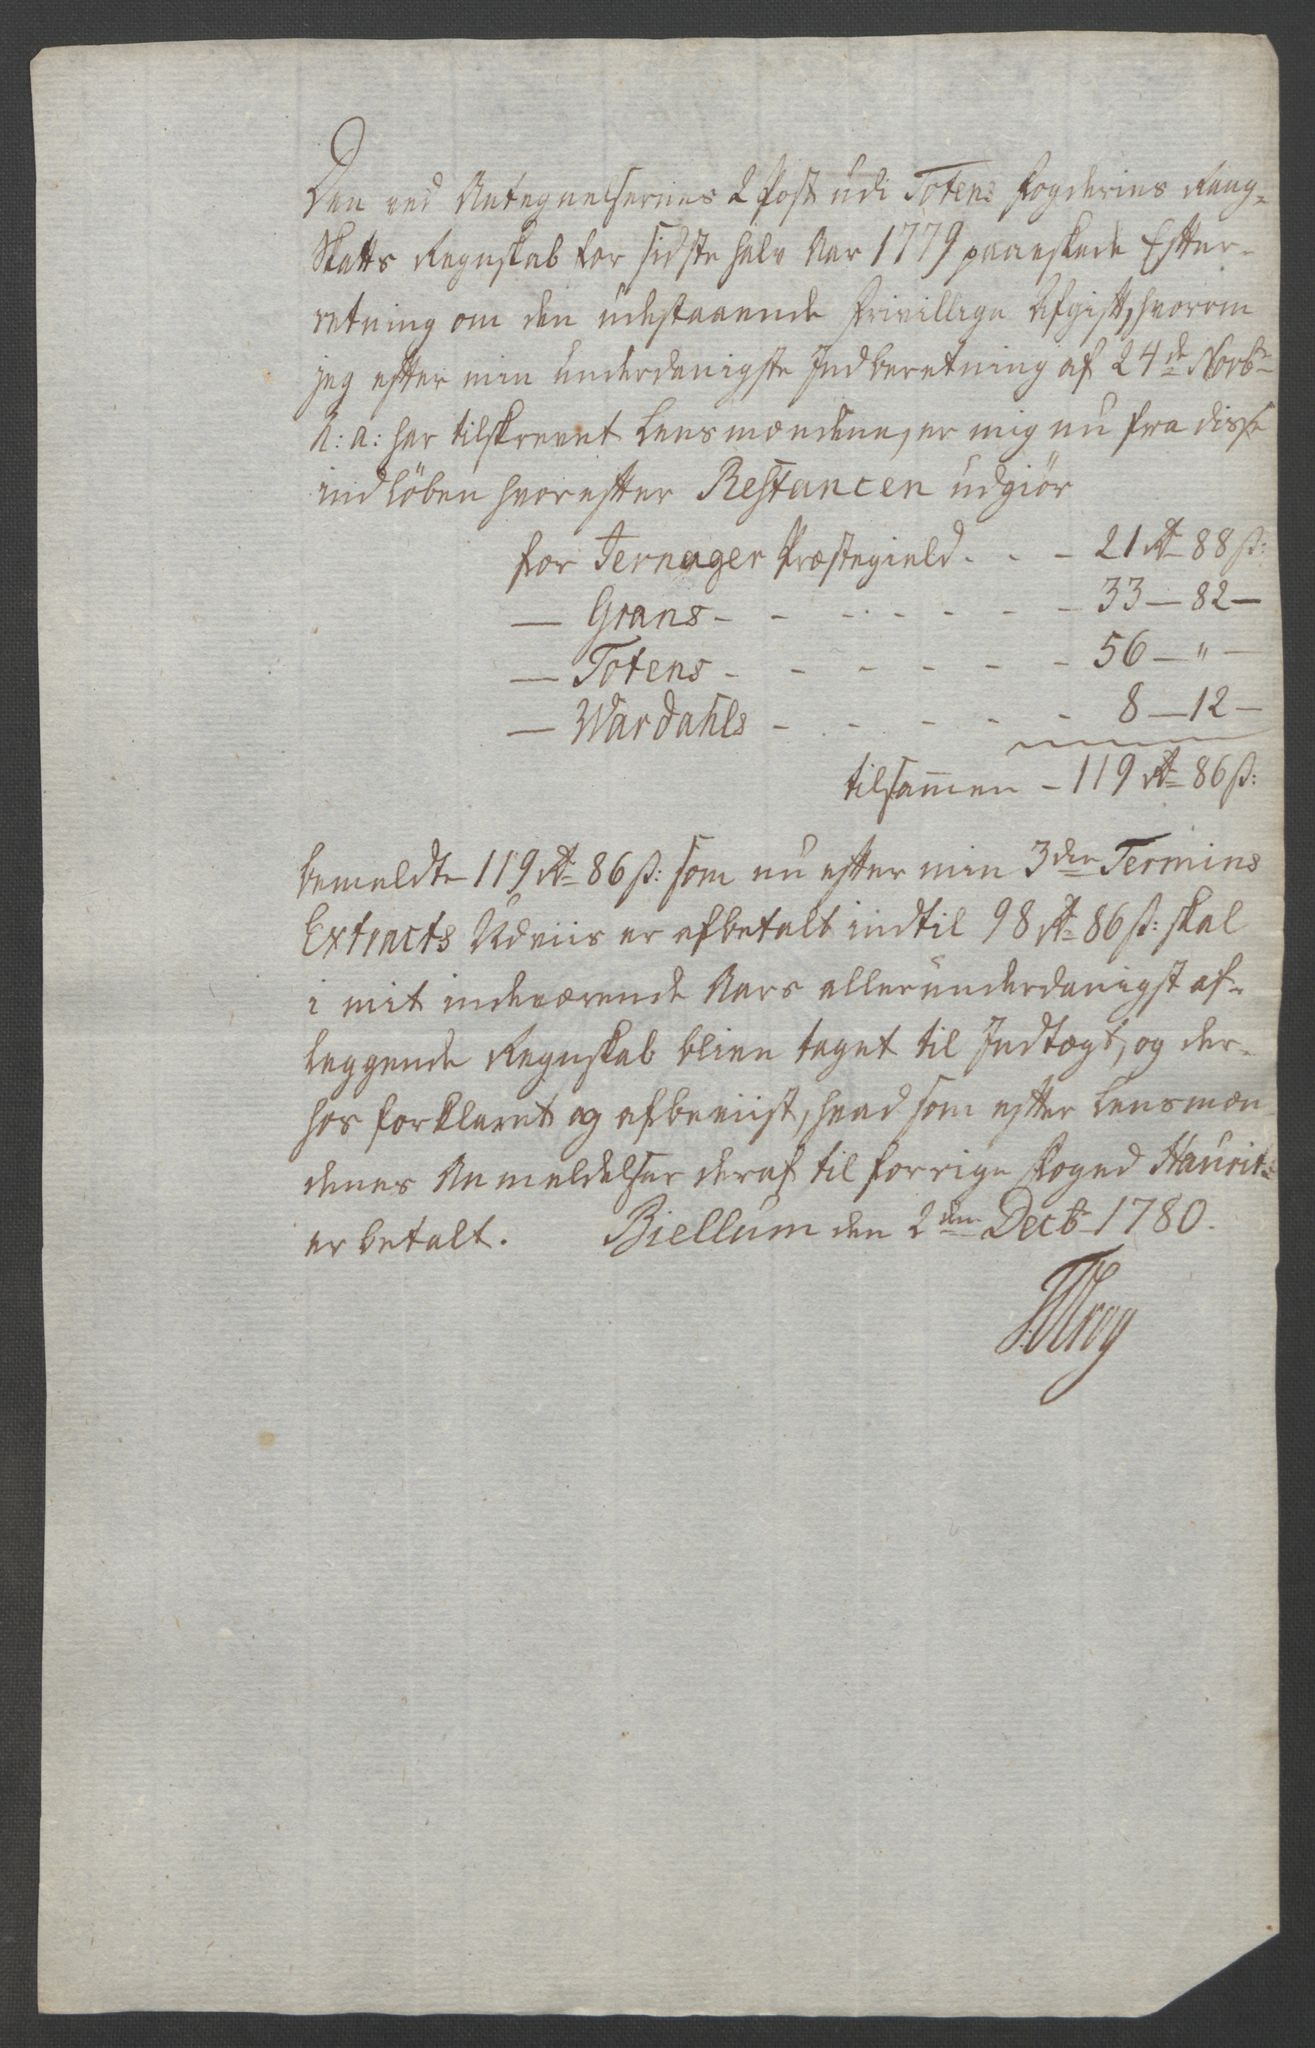 Den ved Antegnelsernes 2 Post udi Totens Fogderies Rang-
Skatts Regnskab for sidste halv Aar 1779 paaeskede Efter-
retning om den udestaaende frivillige Afgift, hvorom
jeg efter min underdanigste Indberetning af 24de Novbr
h: a: har tilskrevet Lensmændene, er mig nu fra disse
indløben hvorefter Restancen udgiör
for Jernager Præstegield - - - 21 Rd 88 ß:
— Grans - - - - - - - 33 — 82 —
— Totens - - - - - - 56 — " —
— Wardahls - - - - - 8 — 12 —
tilsammen - 119 Rd 86 ß:
bemeldte 119 Rd 86 ß: som nu efter min 3die Termins
Extracts Udviis er afbetalt indtil 98 Rd 86 ß: skal
i mit indeværende Aars allerunderdanigst af-
leggende Regnskab blive taget til Indtægt, og der-
hos forklaret og afbeviist, hvad som efter Lensmæn
denes Anmeldelser deraf til forrige Foged Hauritz
er betalt. Biellum den 2den Decbr 1780.